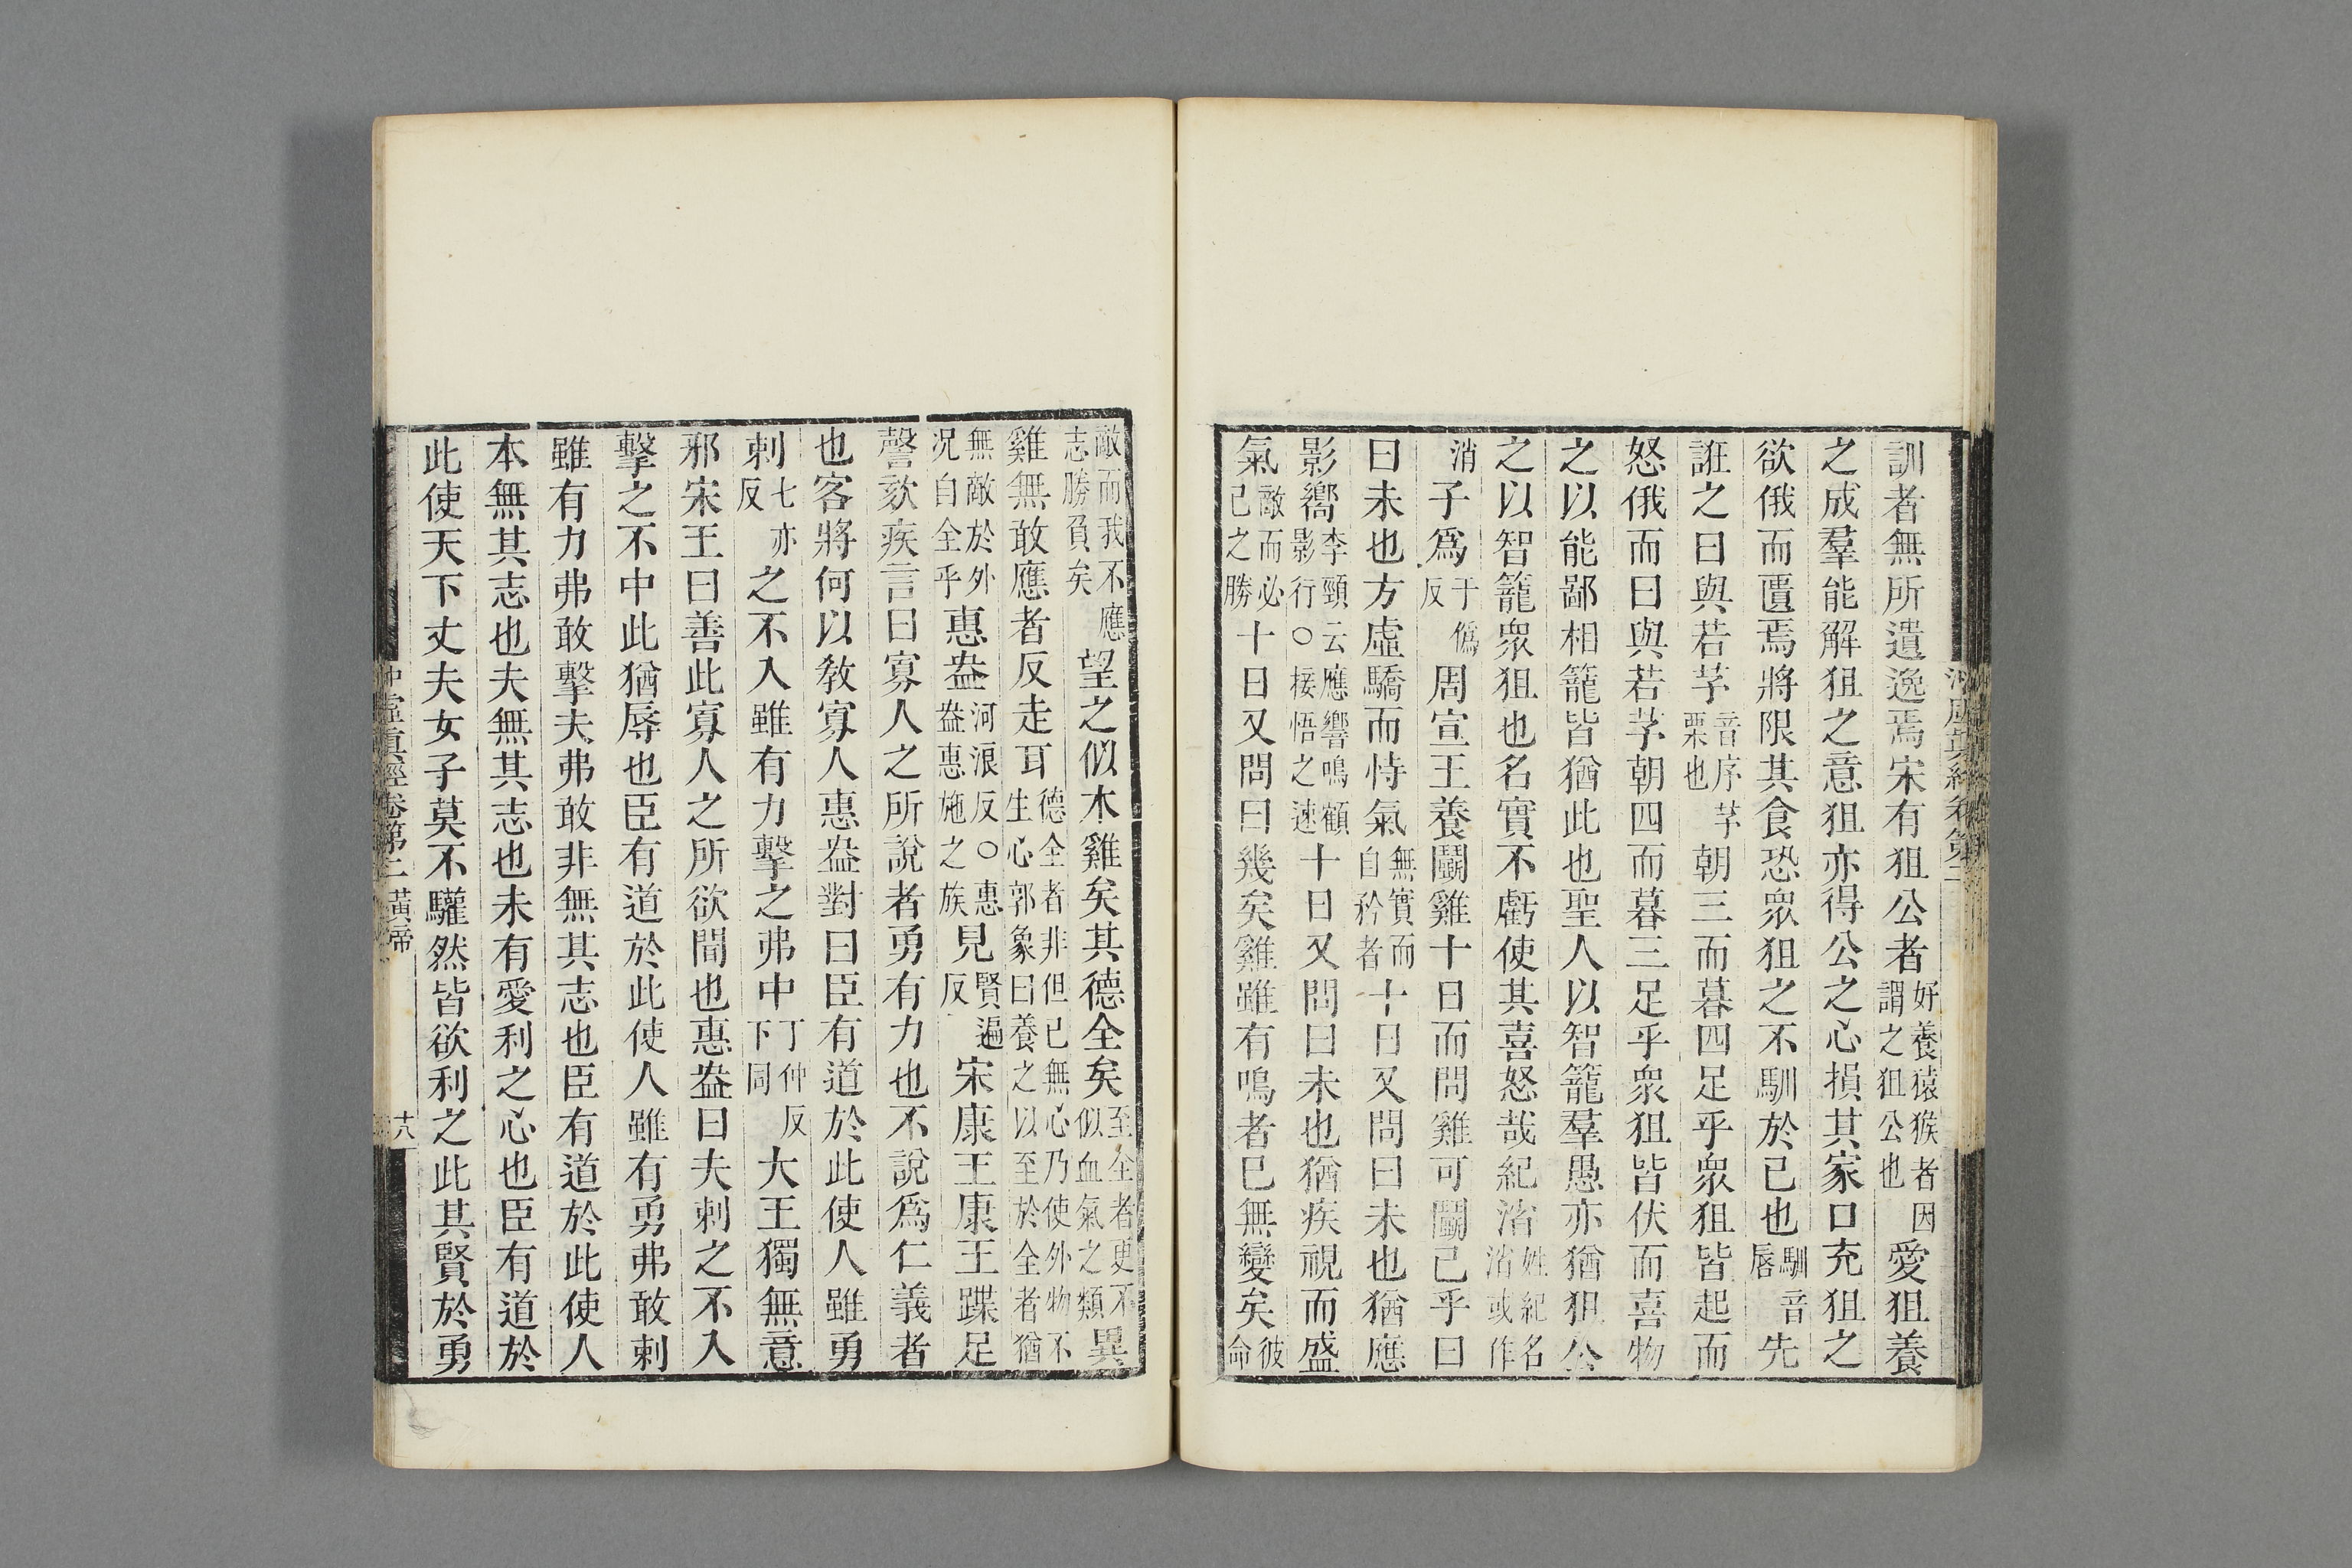 訓者無所遺逸焉宋有狙公者好養猿猴者因謂之狙公也愛狙養
之成羣能解狙之意狙亦得公之心損其家口充狙之
欲俄而匱焉將限其食恐眾狙之不馴於已也馴音唇先
誑之曰與若芧音序芧栗也朝三而暮四足乎眾狙皆起而
怒俄而曰與若芧朝四而暮三足乎眾狙皆伏而喜物
之以能鄙相籠皆猶此也聖人以智籠羣愚亦猶狙公
之以智籠眾狙也名實不虧使其喜怒哉紀渻姓紀名渻或作
消子爲于僞反周宣王養鬬雞十日而問雞可鬬已乎曰
曰未也方虛驕而恃氣無實而自矜者十日又問曰未也猶應
影嚮李頤云應響鳴顧影行○接悟之速十日又問曰未也猶疾視而盛
氣敵而必己之勝十日又問曰幾矣雞雖有鳴者已無變矣彼命
敵而我不應志勝負矣望之似木雞矣其德全矣至全者更不似血氣之類異
雞無敢應者反走耳德全者非但已無心乃使外物不生心郭象曰養之以至於全者猶
無敵於外况自全乎惠盎河浪反○惠盎惠施之族見賢遍反宋康王康王蹀足
謦欬疾言曰寡人之所說者勇有力也不說爲仁義者
也客將何以敎寡人惠盎對曰臣有道於此使人雖勇
刺七亦反之不入雖有力擊之弗中丁仲反下同大王獨無意
邪宋王曰善此寡人之所欲聞也惠盎曰夫刺之不入
擊之不中此猶辱也臣有道於此使人雖有勇弗敢刺
雖有力弗敢擊夫弗敢非無其志也臣有道於此使人
本無其志也夫無其志也未有愛利之心也臣有道於
此使天下丈夫女子莫不驩然皆欲利之此其賢於勇
沖虛真經卷第二 黃帝 十八